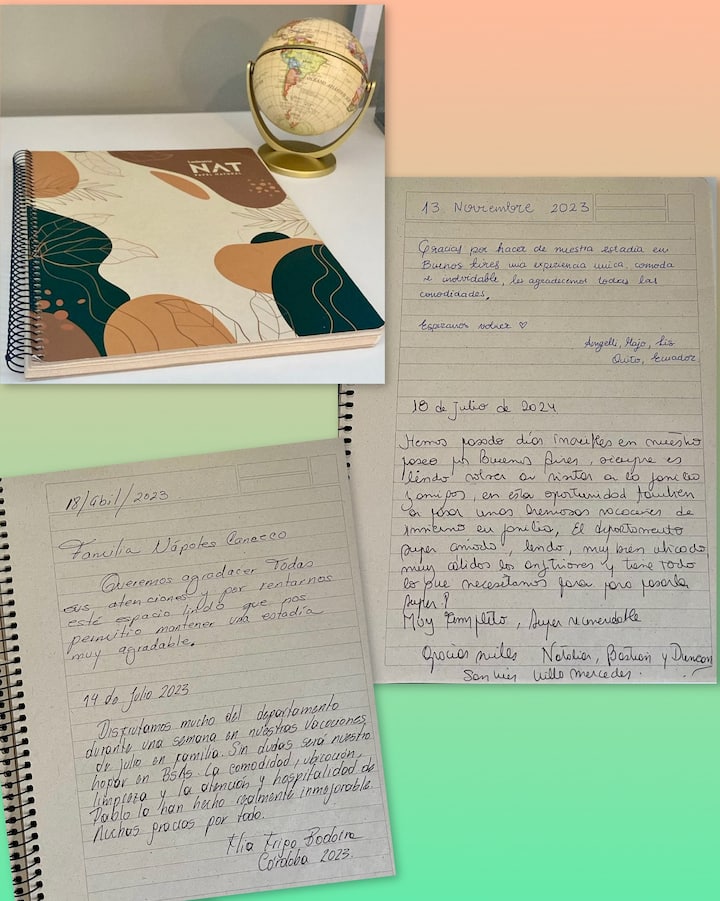 Cuaderno
NAT
PAPEL NATURAL
13 Noviembre 2023
Gracias por hacer de nuestra estadia en
Buenos Aires una experiencia unica, comoda
e inolvidable, les agradecemos todas las
comodidades.
Esperamos volver ♡
Angelli, Majo, Liz
Quito, Ecuador
18 de Julio de 2024
Hemos pasado días increíbles en nuestro
paseo por Buenos Aires, siempre es
lindo volver a visitar a la familia
y amigos, en esta oportunidad tambien
a pasar unas hermosas vacaciones de
invierno en familia, El departamento
super comodo, lindo, muy bien ubicado
muy calidos los anfitriones y tiene todo
lo que necesitamos para pasarla
super!
Muy completito, super recomendable
Gracias miles Natalia, Bastian y Duncan
San Luis Villa Mercedes.
18/Abril/2023
Familia Nápoles Canecco
Queremos agradacer Todas
sus atenciones y por rentarnos
esté espacio lindo que nos
permitio mantener una estadía
muy agradable.
14 de Julio 2023
Disfrutamos mucho del departamento
durante una semana en nuestras vacaciones
de julio en familia. Sin dudas será nuestro
hogar en BSAS. La comodidad, ubicación,
limpieza y la atención y hospitalidad de
Pablo lo han hecho realmente inmejorable.
Muchas gracias por todo.
Flia
Córdoba 2023.